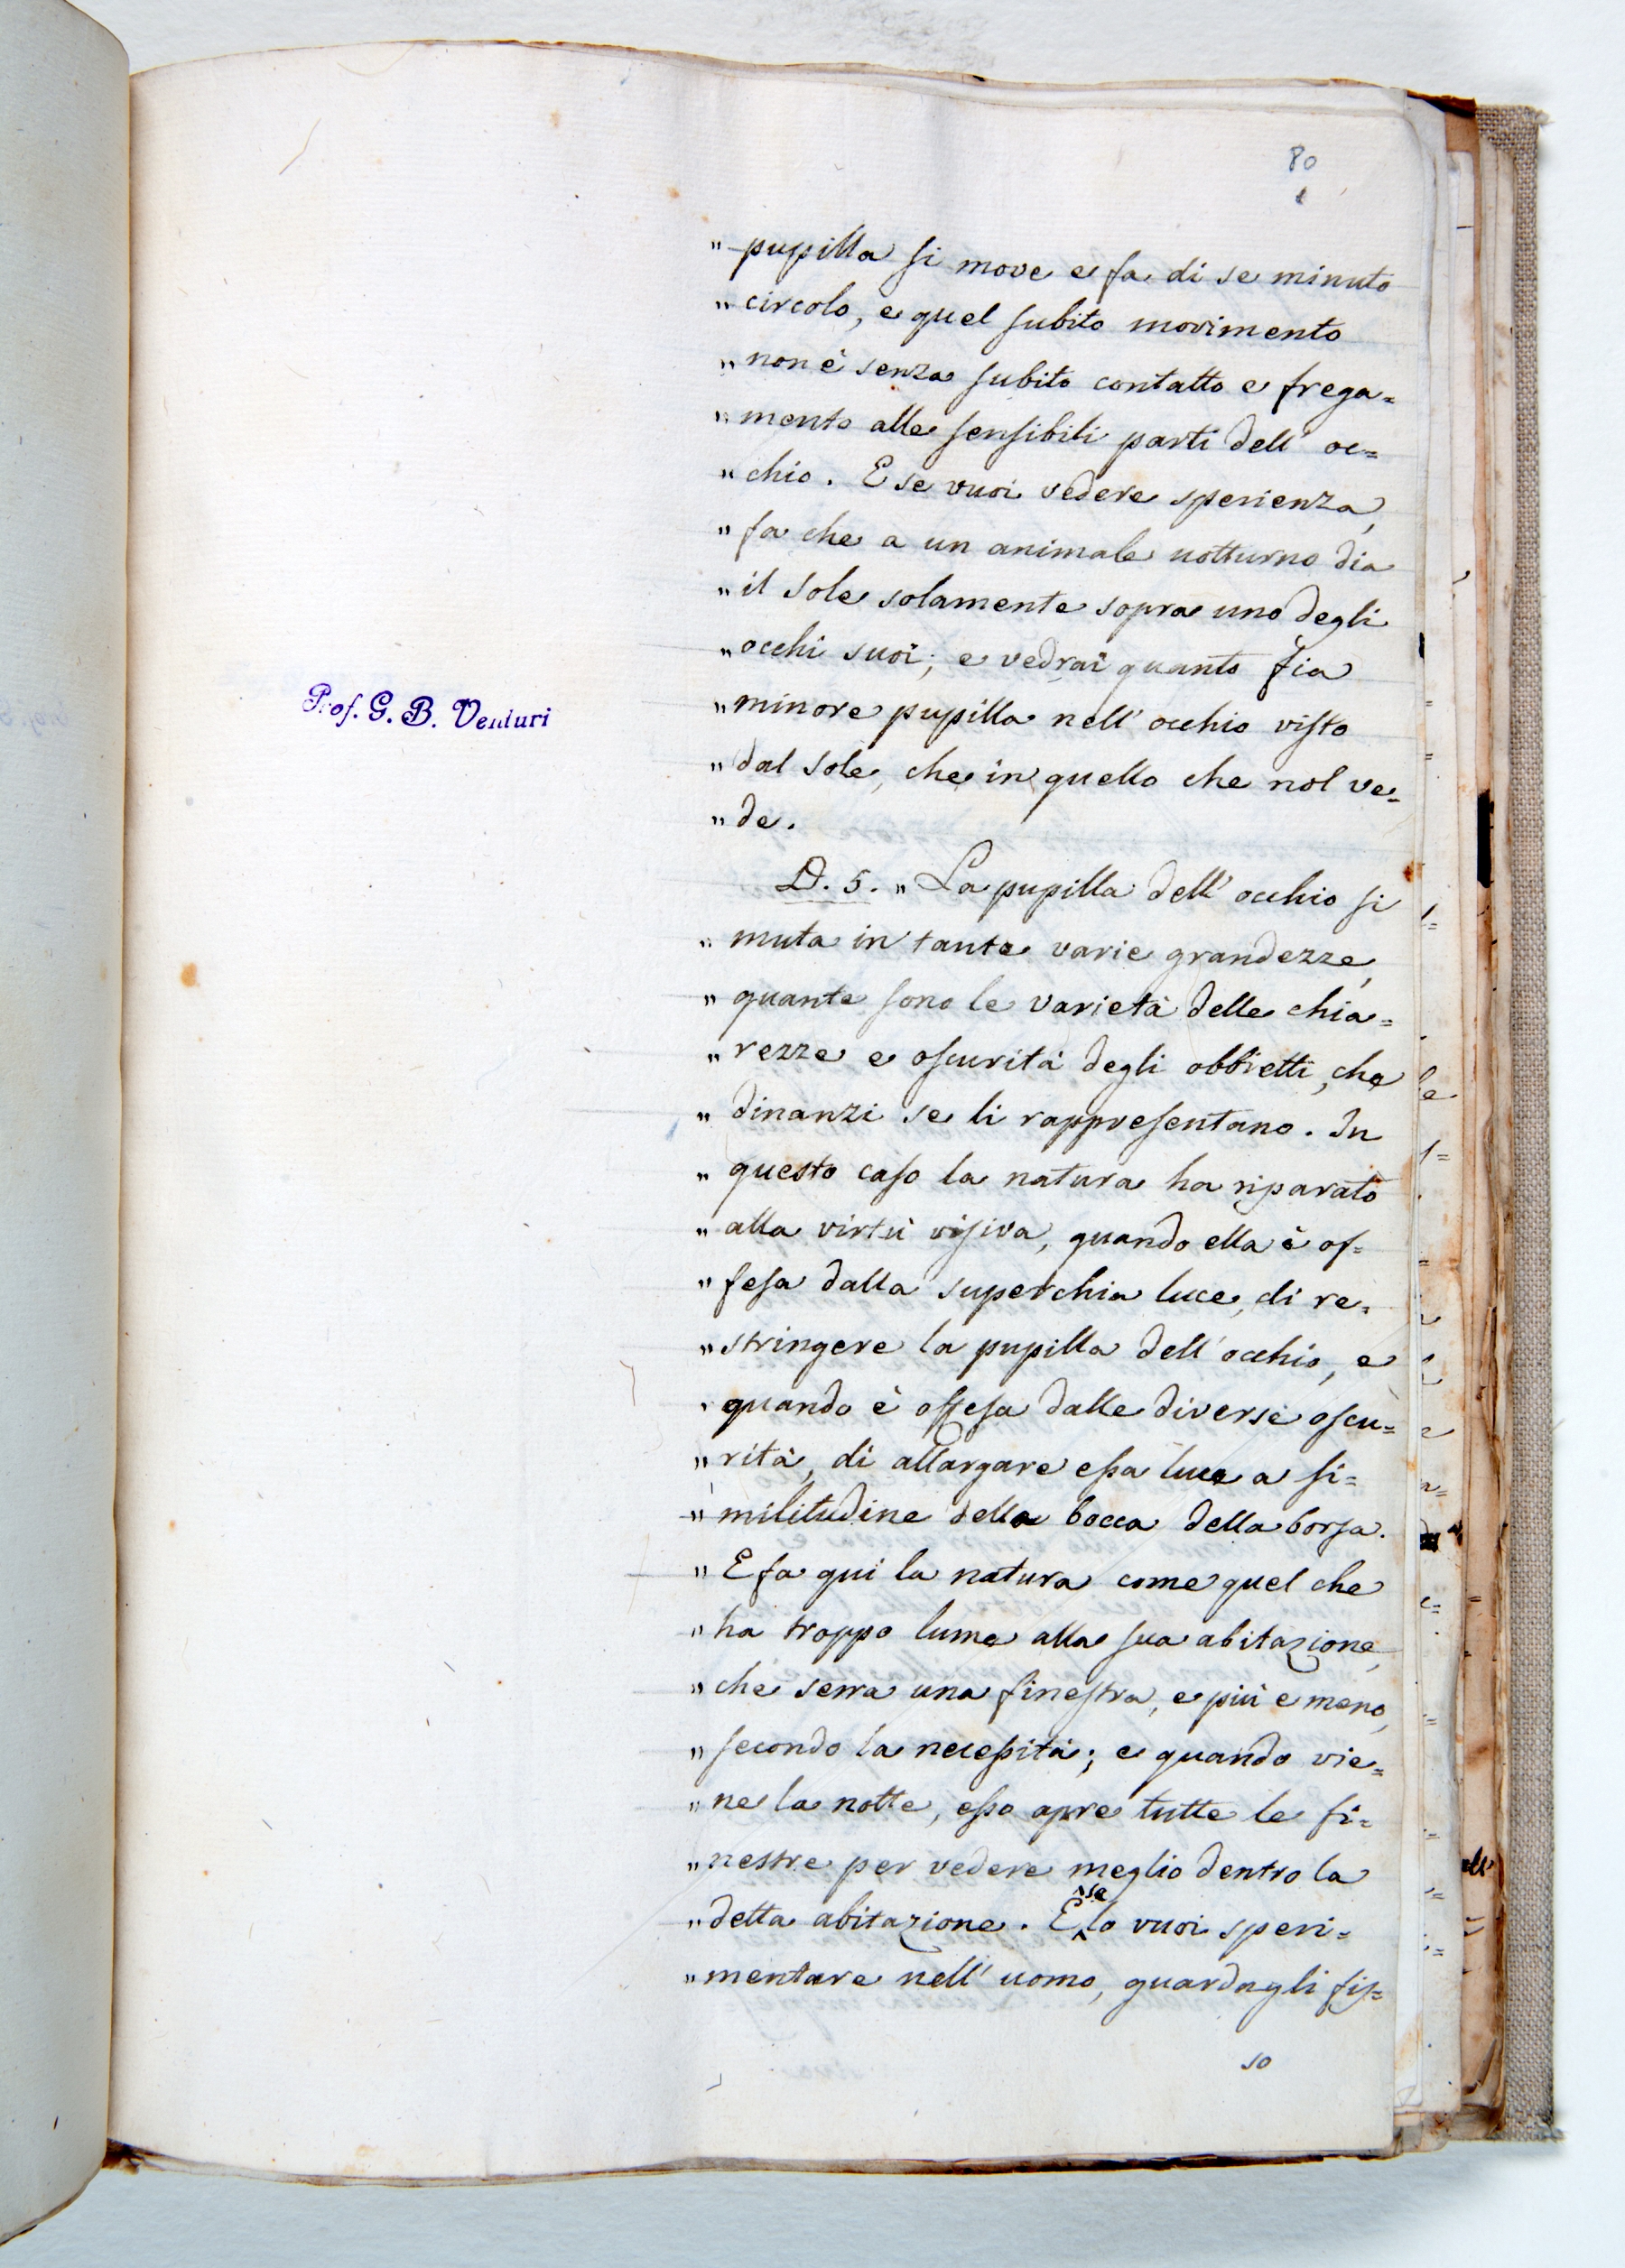 80
„ pupilla si move e fa di se minuto
„ circolo, e quel subito movimento
„ non è senza subito contatto e frega=
„ mento alle sensibili parti dell' oc=
„ chio. E se vuoi vedere sperienza,
„ fa che a un animale notturno dia
„ il sole solamente sopra uno degli
„ occhi suoi; e vedrai quanto fia
Prof. G. B. Venturi
„ minore pupilla nell' occhio visto
„ dal sole, che in quello che nol ve=
„ de.
D. 5. „ La pupilla dell' occhio si
„ muta in tante varie grandezze,
„ quante sono le varietà delle chia=
„ rezze e oscurità degli obbietti, che
„ dinanzi se li rappresentano. In
„ questo caso la natura ha riparato
„ alla virtù visiva, quando ella è of=
„ fesa dalla superchia luce, di re=
„ stringere la pupilla dell' occhio, e
„ quando è offesa dalle diverse oscu=
„ rità, di allargare essa luce a si=
„ militudine della bocca della borsa.
„ E fa qui la natura come quel che
„ ha troppo lume alla sua abitazione,
„ che serra una finestra, e più e meno,
„ secondo la necessità; e quando vie=
„ ne la notte, esso apre tutte le fi=
„ nestre per vedere meglio dentro la
„ detta abitazione. E se lo vuoi speri=
„ mentare nell' uomo, guardagli fis=
so